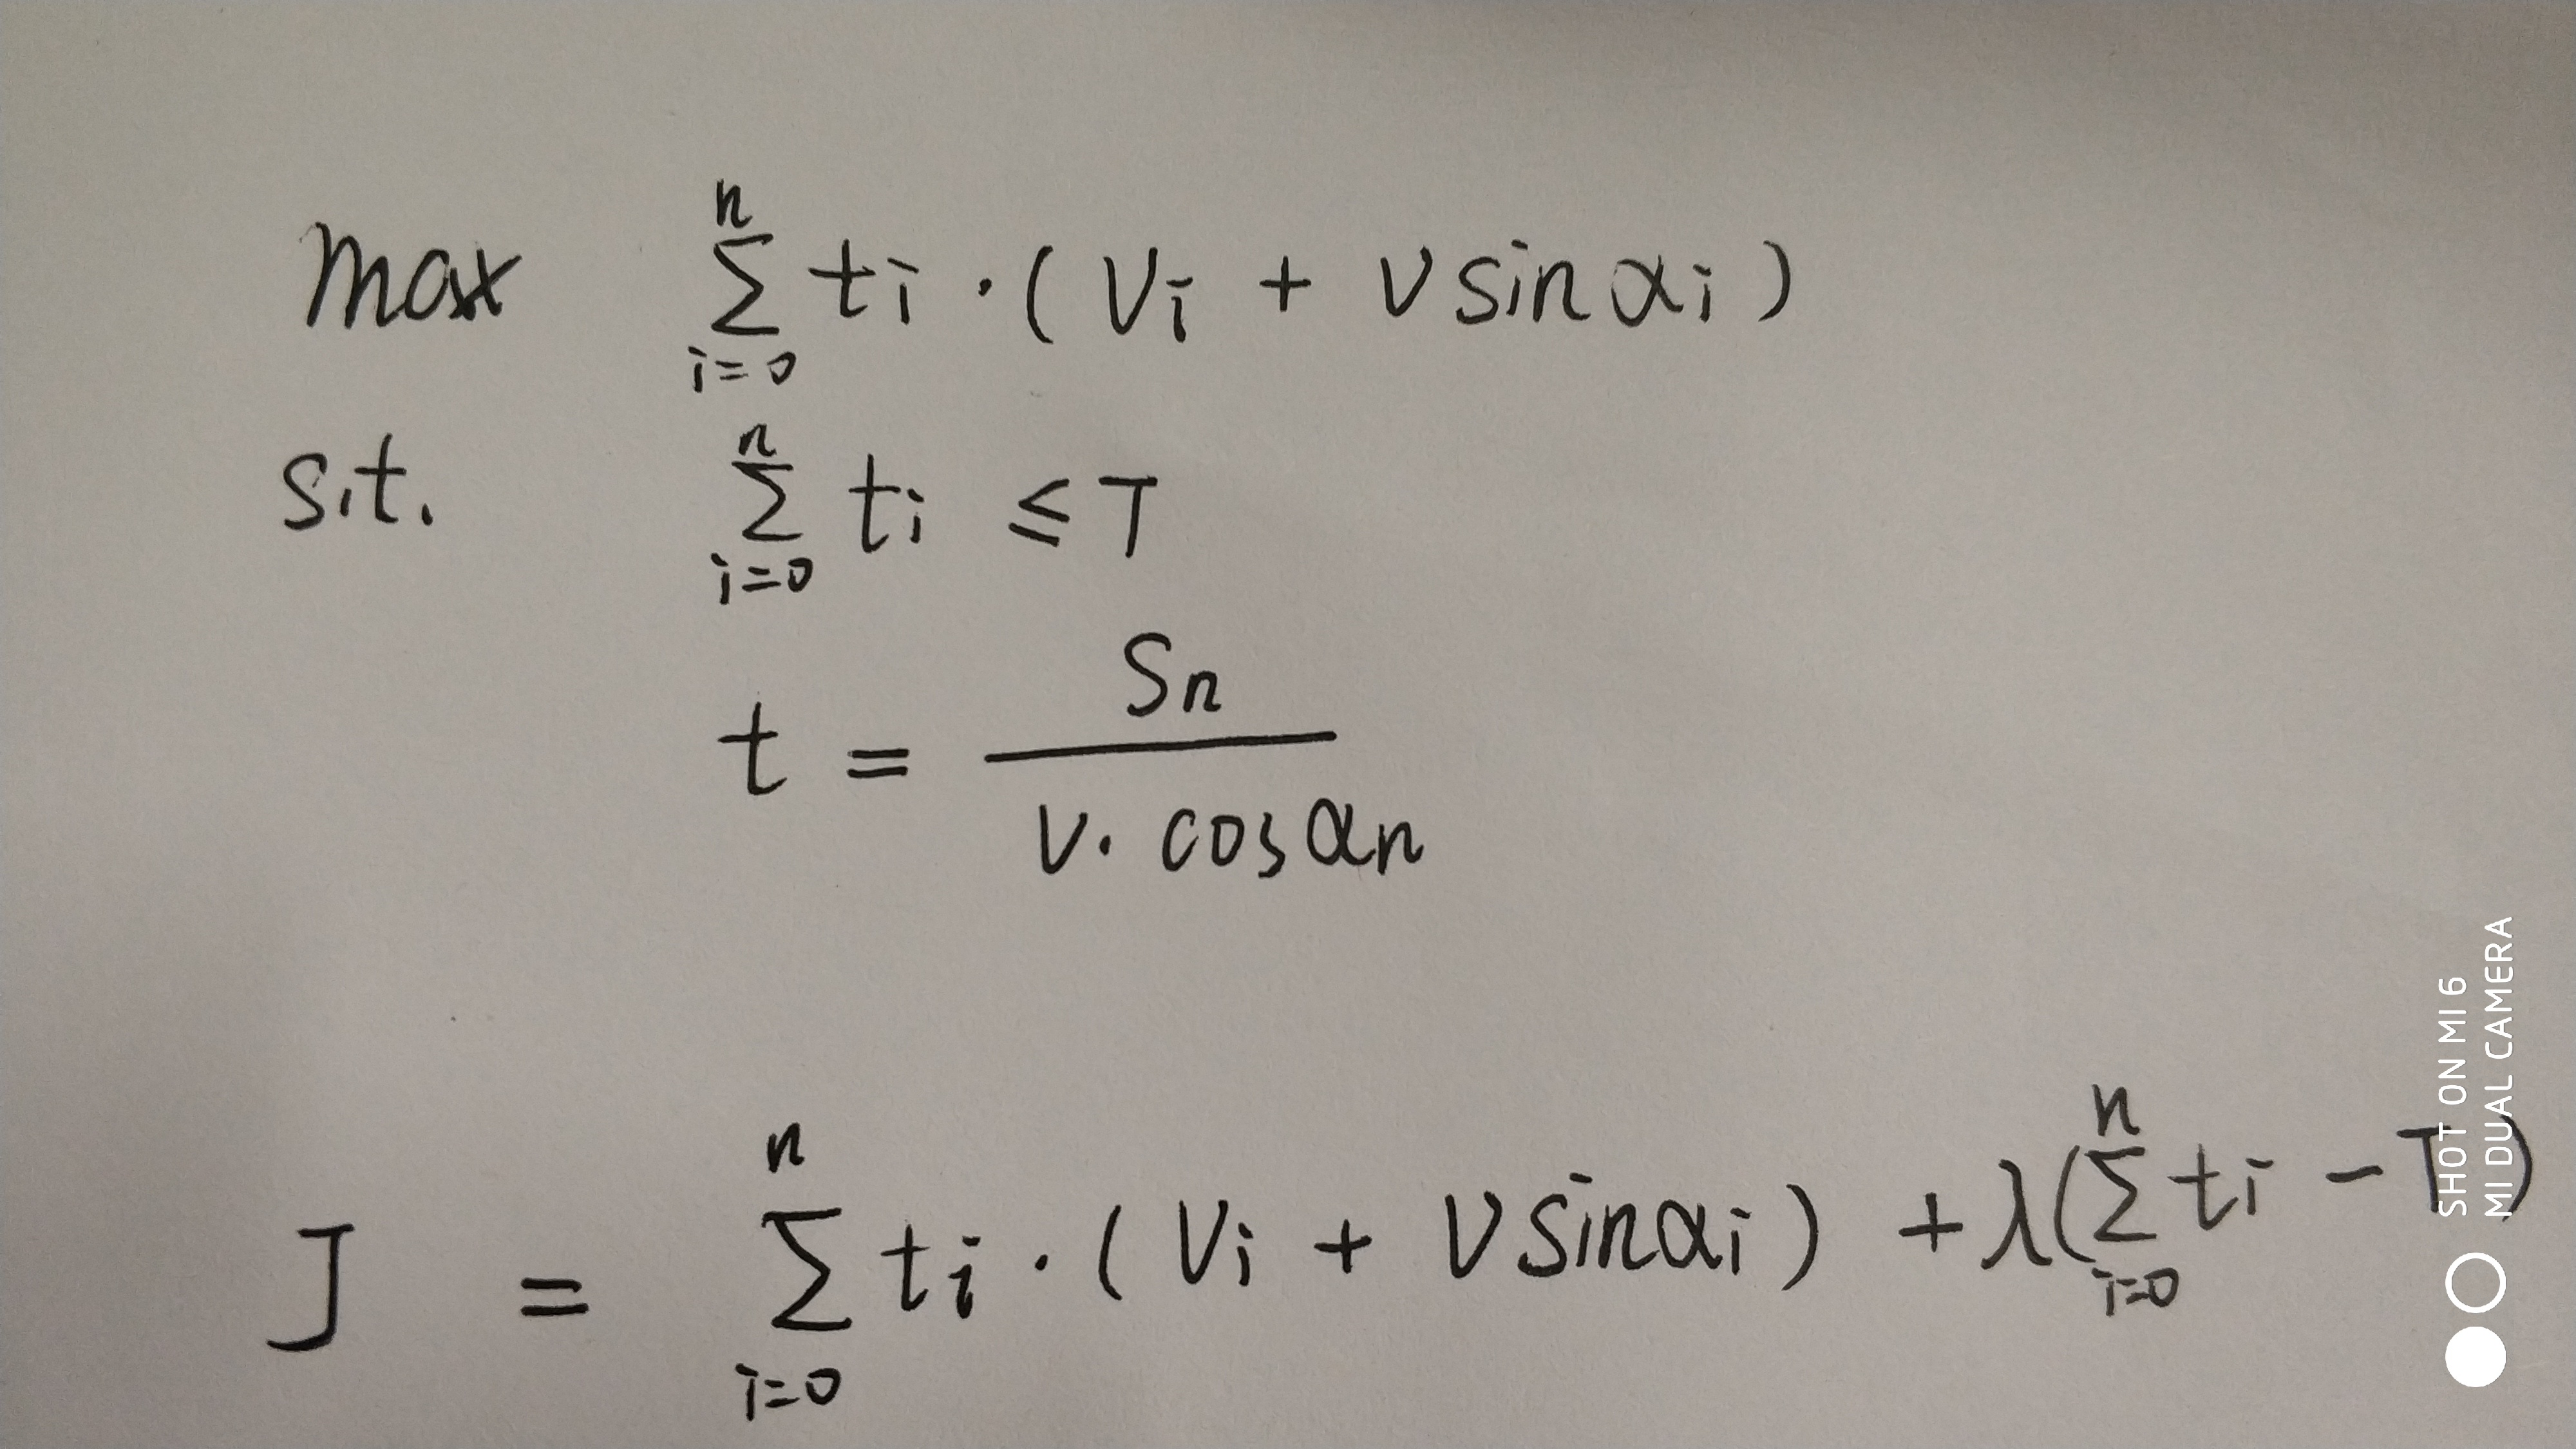 max ∑_{i=0}^{n} t_i · ( v_i + v sin α_i )
s.t. ∑_{i=0}^{n} t_i ≤ T
t = S_n / (v · cos α_n)
J = ∑_{i=0}^{n} t_i · ( v_i + v sin α_i ) + λ( ∑_{i=0}^{n} t_i − T )
SHOT ON MI 6
MI DUAL CAMERA